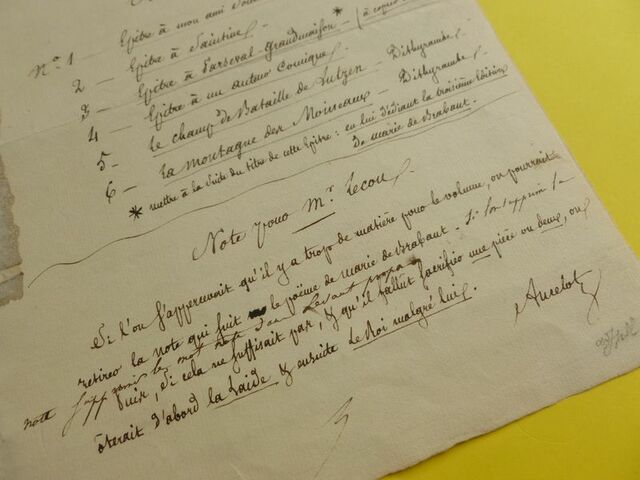 N.o 1 - Epître à mon ami
2 - Epître à Saintine
3 - Epître à Parseval-Grandmaison * (à copier
4 - Epître à un auteur Comique
5 - Le Champ de Bataille de Lutzen - Dithyrambe
6 - La montagne des Moineaux - Dithyrambe
* mettre à la suite du titre de cette Epître : en lui dédiant la troisième Edition
de marie de Brabant.
Note pour Mr. Lecou.
Si l'on s'appercevait qu'il y a trop de matière pour le volume, on pourrait
retirer la note qui suit le poëme de marie de Brabant. Si l'on supprime la
note
puis, si cela ne suffisait pas, & qu'il fallut sacrifier une pièce ou deux, on
ôterait d'abord la Laide & ensuite Le Roi malgré lui.
Ancelot